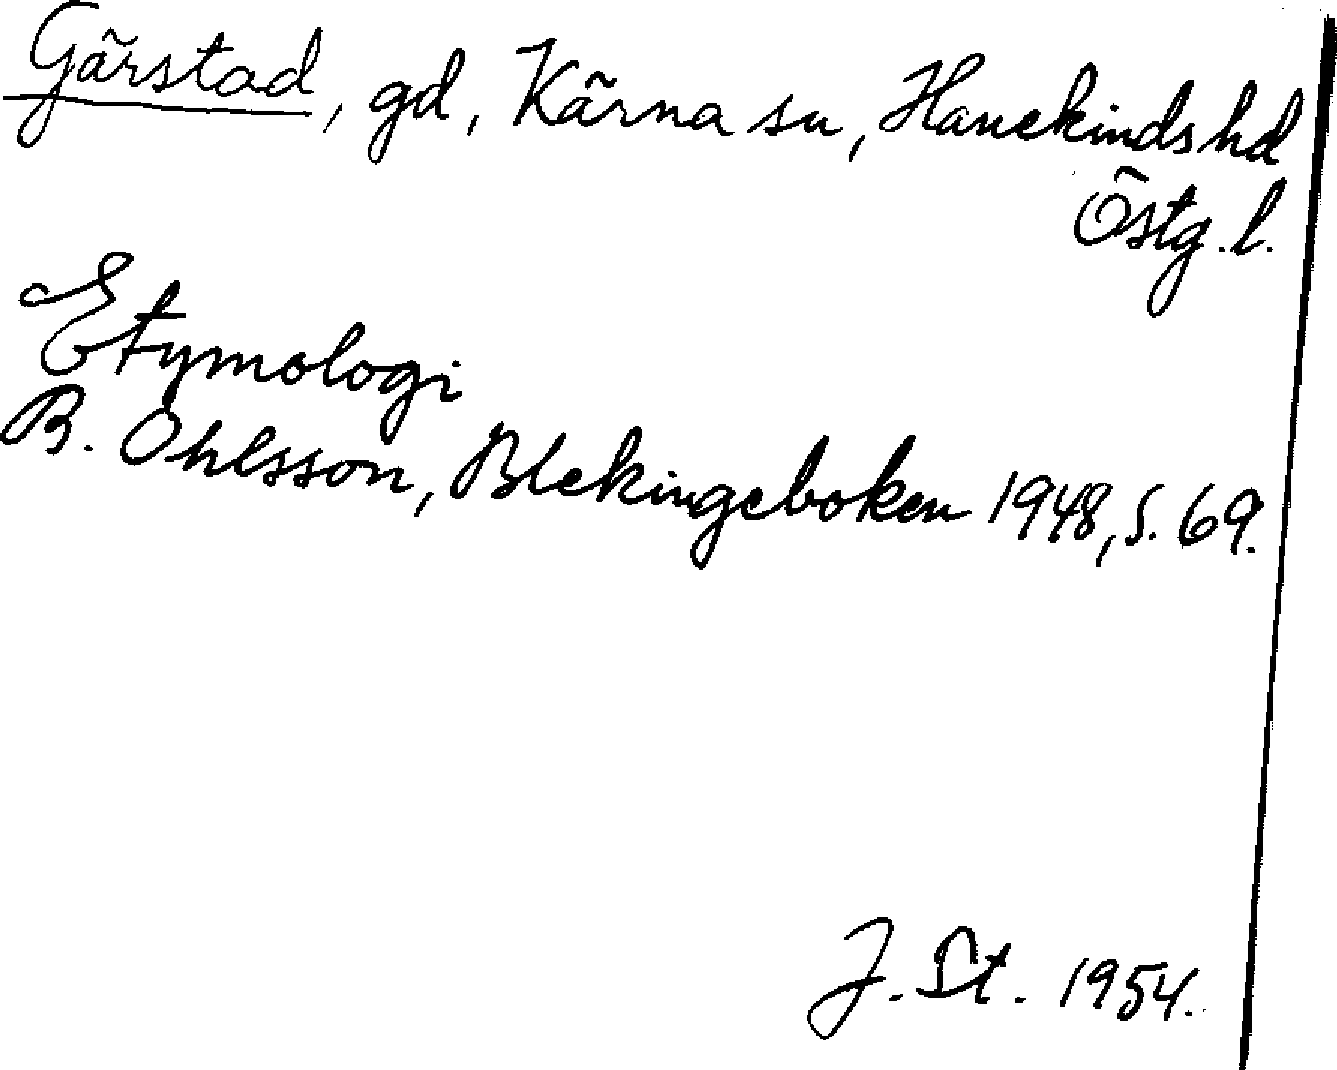 Gärstad, gd, Kärna sn, Hanekinds hd
Östg. l.
Etymologi
B. Ohlsson, Blekingeboken 1948, s. 69.
J. St. 1954.